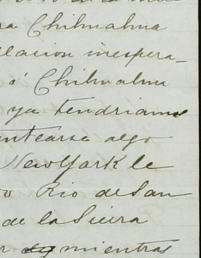 ra Chihuahua
ilacion inespera-
ó Chihuahua
ya tendriamos
ntearse algo
New York le
o Rio de San
de la Sierra
mientras